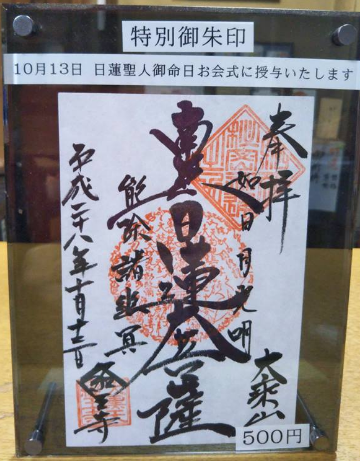 特別御朱印
10月13日 日蓮聖人御命日お会式に授与いたします
奉拝
如日月光明
大乗山
南無日蓮大菩薩
能除諸幽冥
平成二十八年十月十三日
500円